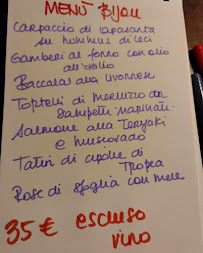 MENÙ BIJOU
Carpaccio di capasanta
su hummus di ceci
Gamberi al forno con olio
all'aglio
Baccalà alla livornese
Totteli di merluzzo con
marinati
Salmone alla Teryaki
e muscovado
Tatin di cipolle di
Tropea
Rose di sfoglia con mele
35€ escluso
vino